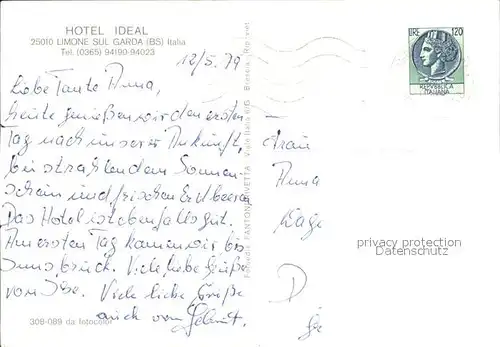 HOTEL IDEAL
25010 LIMONE SUL GARDA (BS) Italia
Tel. (0365) 94190-94023
12/5.79
LIRE 120
REPVBBLICA
ITALIANA
Liebe Tante Anna,
heute genießen wir den ersten
Tag nach unserer Ankunft,
bei strahlendem Sonnen-
schein und frischen Erdbeeren
Das Hotel ist ebenfalls gut.
Am ersten Tag kamen wir bis
Innsbruck. Viele liebe Grüße
von Ilse. Viele liebe Grüße
auch von Helmut.
308-089 da fotocolor
Brescia - Ripr. viet.
Frau
Anna
D
privacy protection
Datenschutz